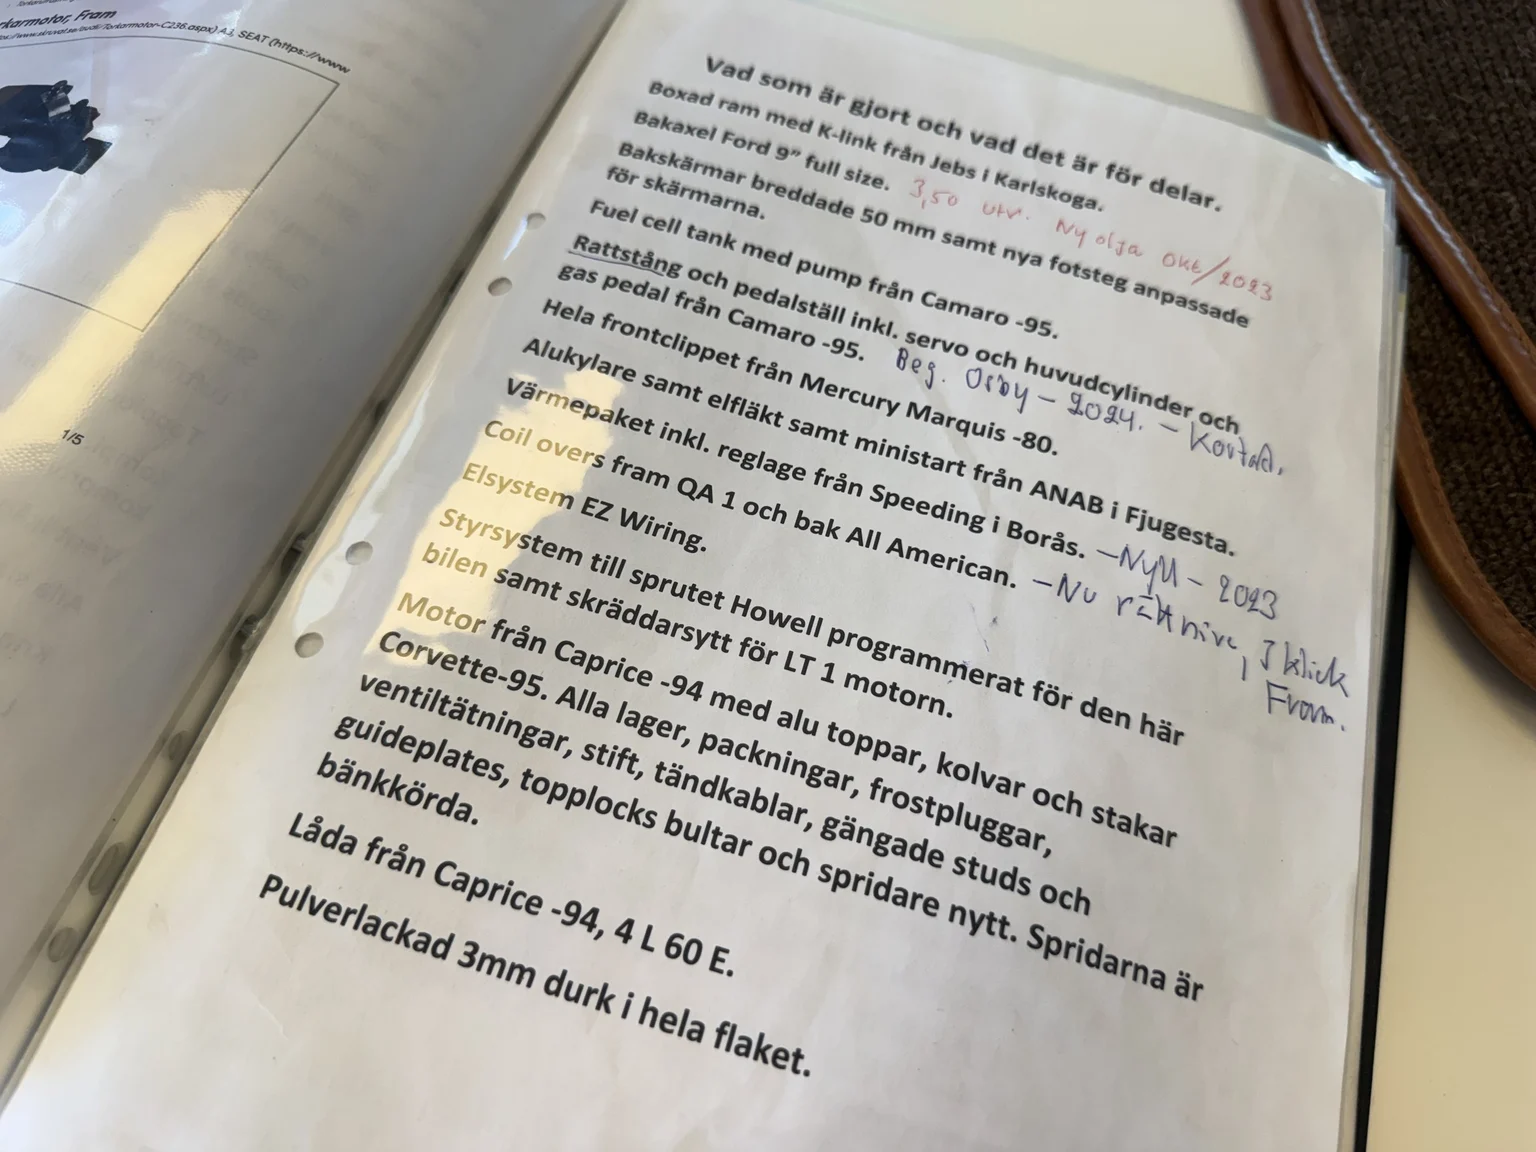 rkarmotor, Fram
os://www.skruvat.se/audi/Torkarmotor-C236.aspx) A3, SEAT (https://www
1/5
Vad som är gjort och vad det är för delar.
Boxad ram med K-link från Jebs i Karlskoga.
Bakaxel Ford 9” full size. 3,50 utv. Ny olja Okt/2023
Bakskärmar breddade 50 mm samt nya fotsteg anpassade
för skärmarna.
Fuel cell tank med pump från Camaro -95.
Rattstång och pedalställ inkl. servo och huvudcylinder och
gas pedal från Camaro -95. Beg. Osby - 2024. - Kortad.
Hela frontclippet från Mercury Marquis -80.
Alukylare samt elfläkt samt ministart från ANAB i Fjugesta.
Värmepaket inkl. reglage från Speeding i Borås. - Nytt - 2023
Coil overs fram QA 1 och bak All American. - Nu rätt nivå, 3 klick
Fram.
Elsystem EZ Wiring.
Styrsystem till sprutet Howell programmerat för den här
bilen samt skräddarsytt för LT 1 motorn.
Motor från Caprice -94 med alu toppar, kolvar och stakar
Corvette-95. Alla lager, packningar, frostpluggar,
ventiltätningar, stift, tändkablar, gängade studs och
guideplates, topplocks bultar och spridare nytt. Spridarna är
bänkkörda.
Låda från Caprice -94, 4 L 60 E.
Pulverlackad 3mm durk i hela flaket.